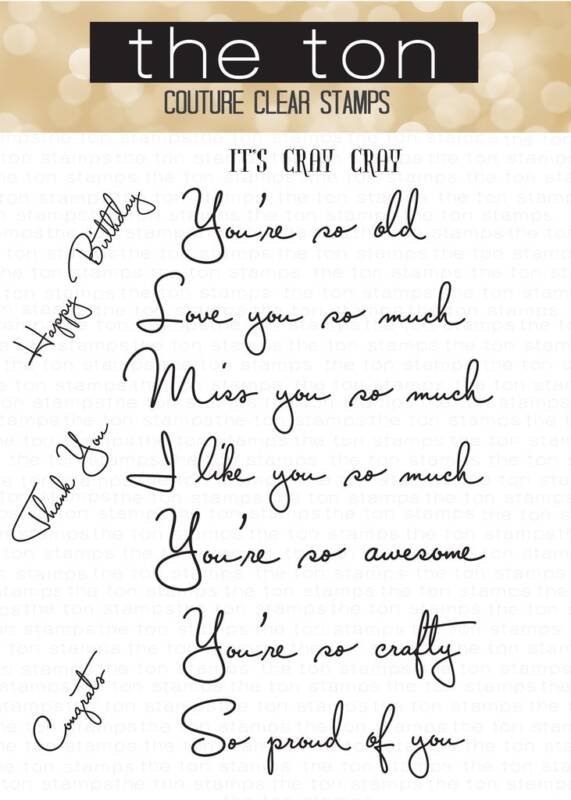 the ton
COUTURE CLEAR STAMPS
IT'S CRAY CRAY
You're so old
Love you so much
Miss you so much
I like you so much
You're so awesome
You're so crafty
So proud of you
Happy Birthday
Thank You
Congrats